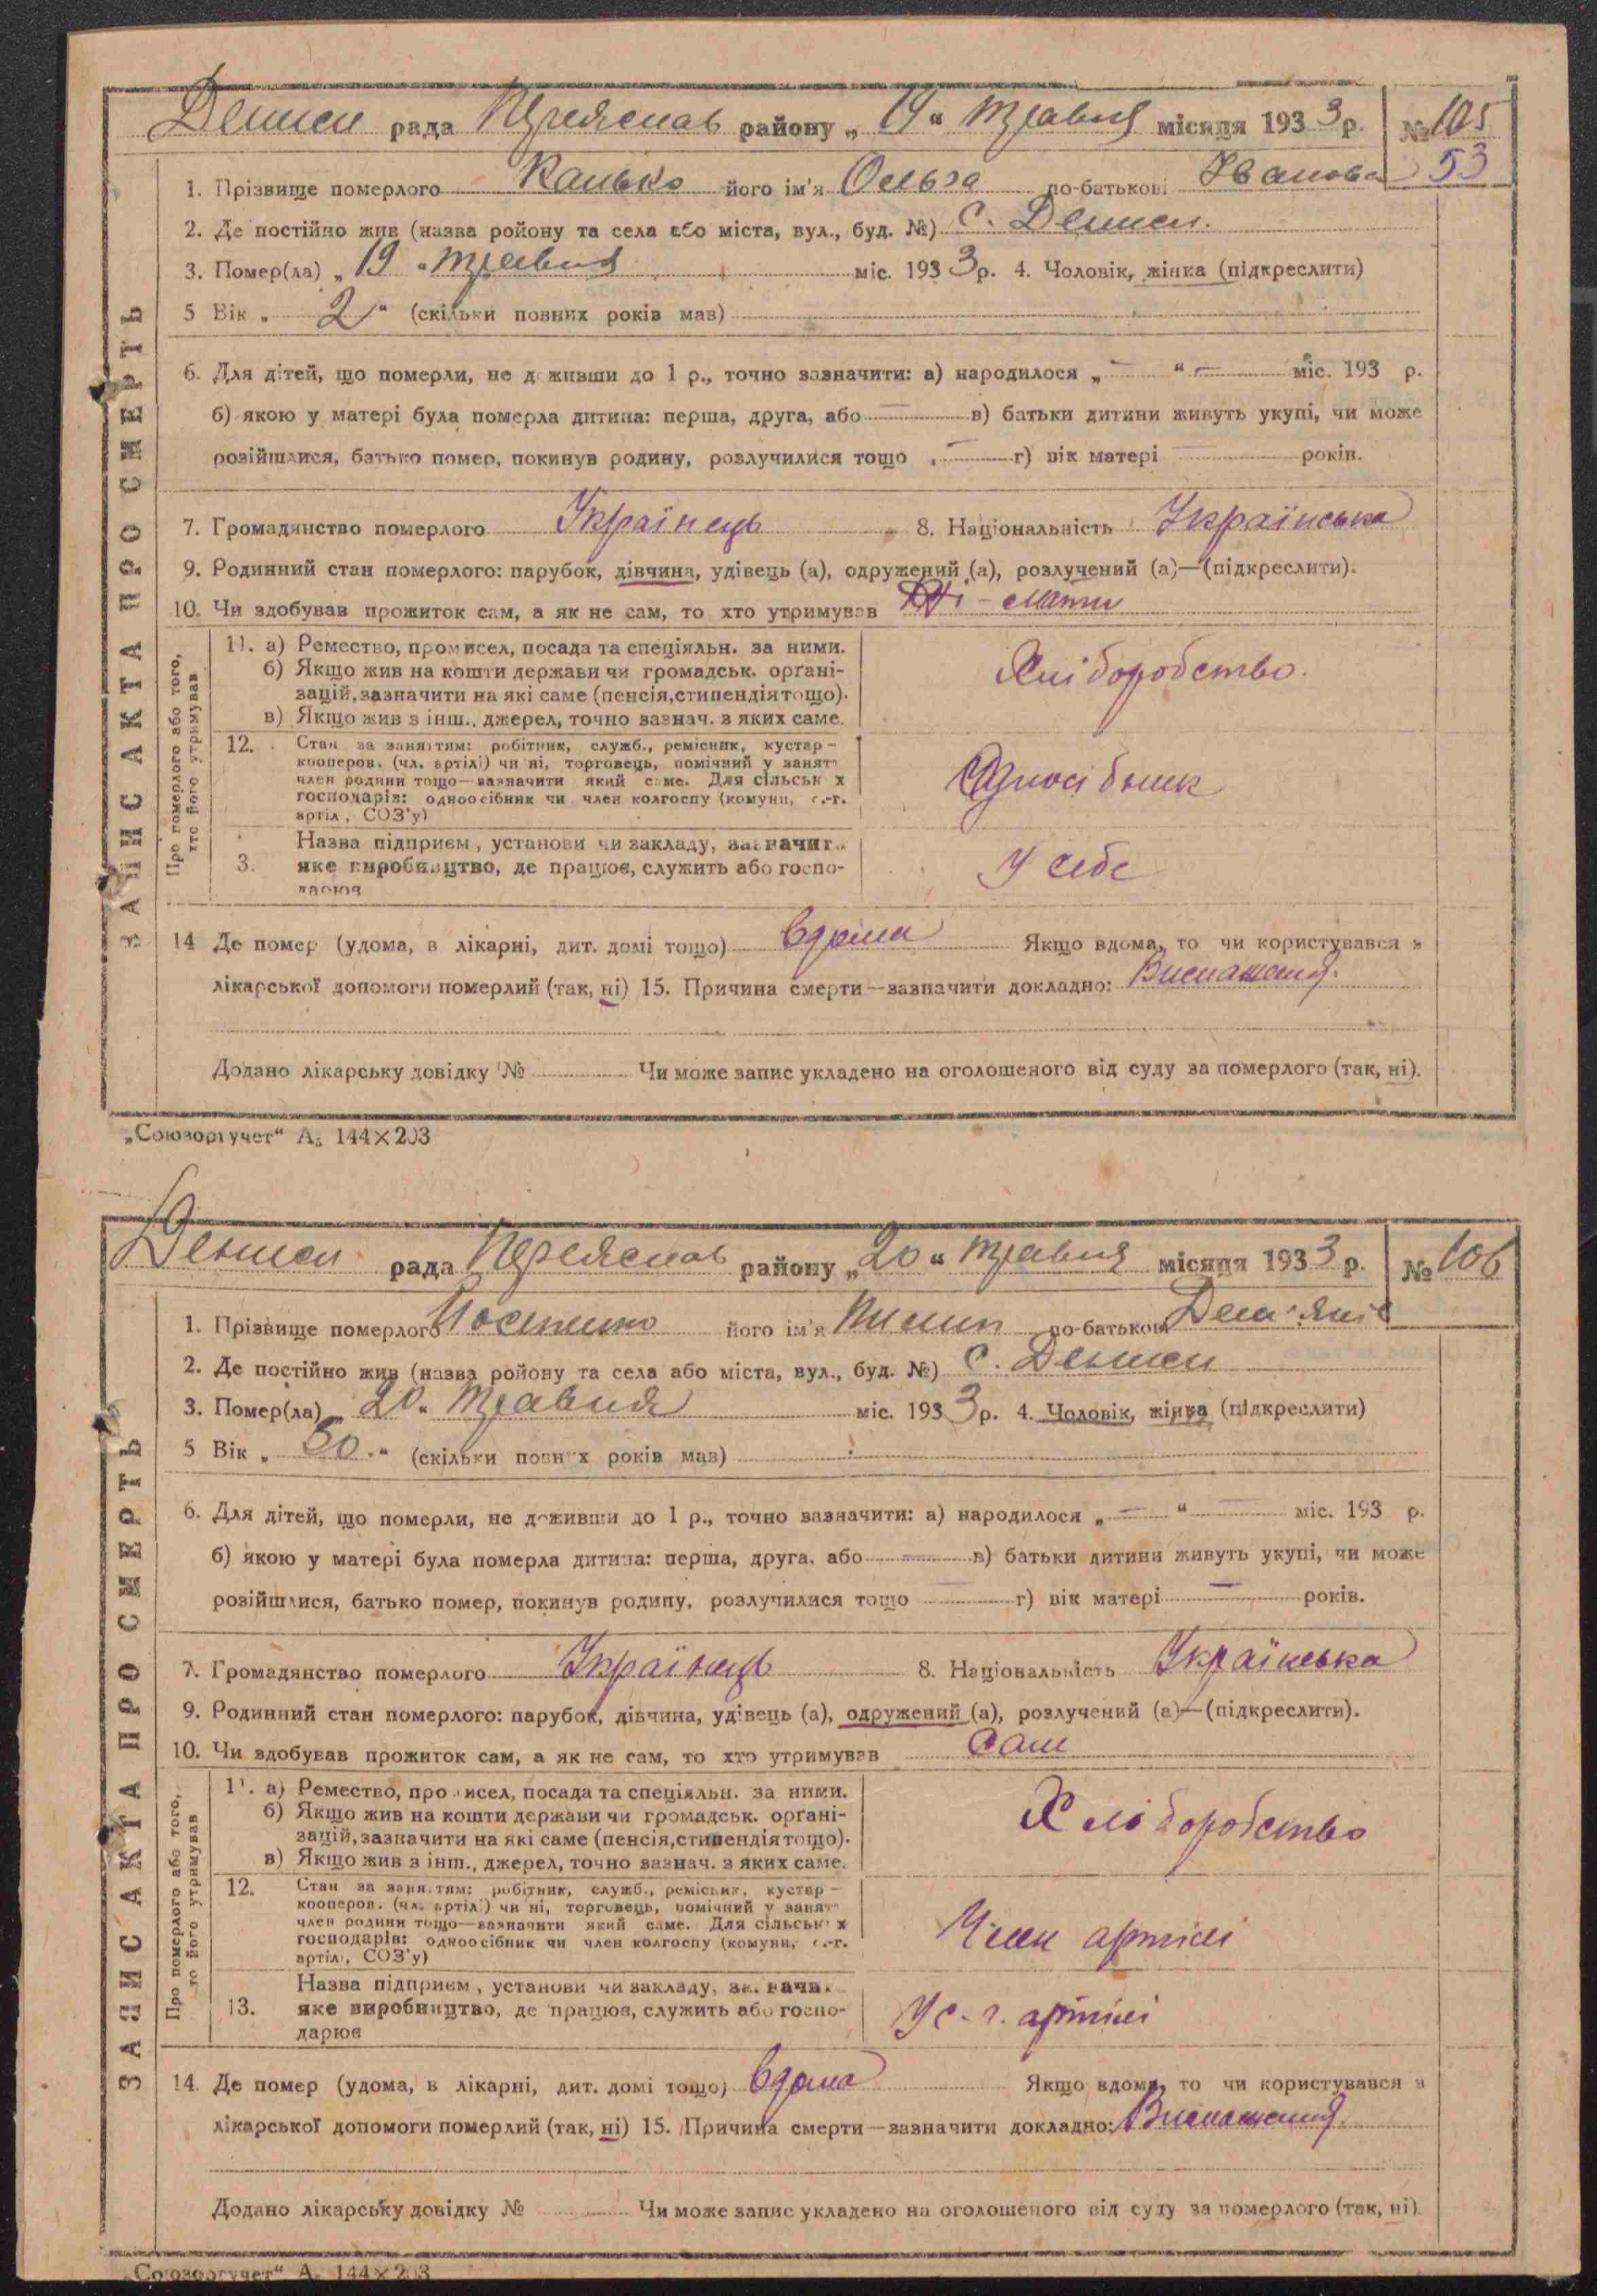 Дениси рада Переяслав району „19“ травня місяця 1933 р. № 105
53
1. Прізвище померлого Канько його ім'я Ольга по-батькові Іванова
2. Де постійно жив (назва ройону та села або міста, вул., буд. №) с. Дениси.
3. Помер(ла) „19“ травня міс. 1933 р. 4. Чоловік, жінка (підкреслити)
5 Вік „ 2 “ (скільки повних років мав)
6. Для дітей, що померли, не доживши до 1 р., точно зазначити: а) народилося „ — “ — міс. 193 р.
б) якою у матері була померла дитина: перша, друга, або — в) батьки дитини живуть укупі, чи може
розійшлися, батько помер, покинув родину, розлучилися тощо — г) вік матері — років.
7. Громадянство померлого Українець 8. Національність Українська
9. Родинний стан померлого: парубок, дівчина, удівець (а), одружений (а), розлучений (а)—(підкреслити).
10. Чи здобував прожиток сам, а як не сам, то хто утримував - мати
11. а) Ремество, промисел, посада та спеціяльн. за ними.
б) Якщо жив на кошти держави чи громадськ. орґані-
зацій, зазначити на які саме (пенсія, стипендія тощо).
в) Якщо жив з інш., джерел, точно зазнач. з яких саме.
Хліборобство.
12. Стан за заняттям: робітник, служб., ремісник, кустар –
кооперов. (чл. артілі) чи ні, торговець, помічний у занятт
член родини тощо—зазначити який саме. Для сільськ х
господарів: одноосібник чи член колгоспу (комуни, с.-г.
артіл , СОЗ'у)
Одноосібник
3. Назва підприєм , установи чи закладу, зазначит
яке виробництво, де працює, служить або госпо-
дарює
У себе
14 Де помер (удома, в лікарні, дит. домі тощо) вдома Якщо вдома, то чи користувався з
лікарської допомоги померлий (так, ні) 15. Причина смерти—зазначити докладно: Виснаження.
Додано лікарську довідку № Чи може запис укладено на оголошеного від суду за померлого (так, ні).
ЗАПИС АКТА ПРО СМЕРТЬ
Про померлого або того,
хто його утримував
„Союзоргучет“ А₅ 144×203
Дениси рада Переяслав району „20“ травня місяця 1933 р. № 106
1. Прізвище померлого його ім'я Пилип по-батькові Дем'янів
2. Де постійно жив (назва ройону та села або міста, вул., буд. №) с. Дениси
3. Помер(ла) „20“ травня міс. 1933 р. 4. Чоловік, жінка (підкреслити)
5 Вік „ 50. “ (скільки повн х років мав)
6. Для дітей, що померли, не доживши до 1 р., точно зазначити: а) народилося „ — “ — міс. 193 р.
б) якою у матері була померла дитина: перша, друга, або — в) батьки дитини живуть укупі, чи може
розійшлися, батько помер, покинув родину, розлучилися тощо — г) вік матері — років.
7. Громадянство померлого Українець 8. Національність Українська
9. Родинний стан померлого: парубок, дівчина, удівець (а), одружений (а), розлучений (а)—(підкреслити).
10. Чи здобував прожиток сам, а як не сам, то хто утримував Сам
11. а) Ремество, промисел, посада та спеціяльн. за ними.
б) Якщо жив на кошти держави чи громадськ. орґані-
зацій, зазначити на які саме (пенсія, стипендія тощо).
в) Якщо жив з інш., джерел, точно зазнач. з яких саме.
Хліборобство
12. Стан за заняттям: робітник, служб., ремісник, кустар –
кооперов. (чл. артілі) чи ні, торговець, помічний у занятт
член родини тощо—зазначити який саме. Для сільськ х
господарів: одноосібник чи член колгоспу (комуни, с.-г.
артіл , СОЗ'у)
Член артілі
13. Назва підприєм , установи чи закладу, зазначи
яке виробництво, де працює, служить або госпо-
дарює
У с.-г. артілі
14. Де помер (удома, в лікарні, дит. домі тощо) вдома Якщо вдома, то чи користувався з
лікарської допомоги померлий (так, ні) 15. Причина смерти—зазначити докладно: Виснаження.
Додано лікарську довідку № Чи може запис укладено на оголошеного від суду за померлого (так, ні).
ЗАПИС АКТА ПРО СМЕРТЬ
Про померлого або того,
хто його утримував
„Союзоргучет“ А₅ 144×203